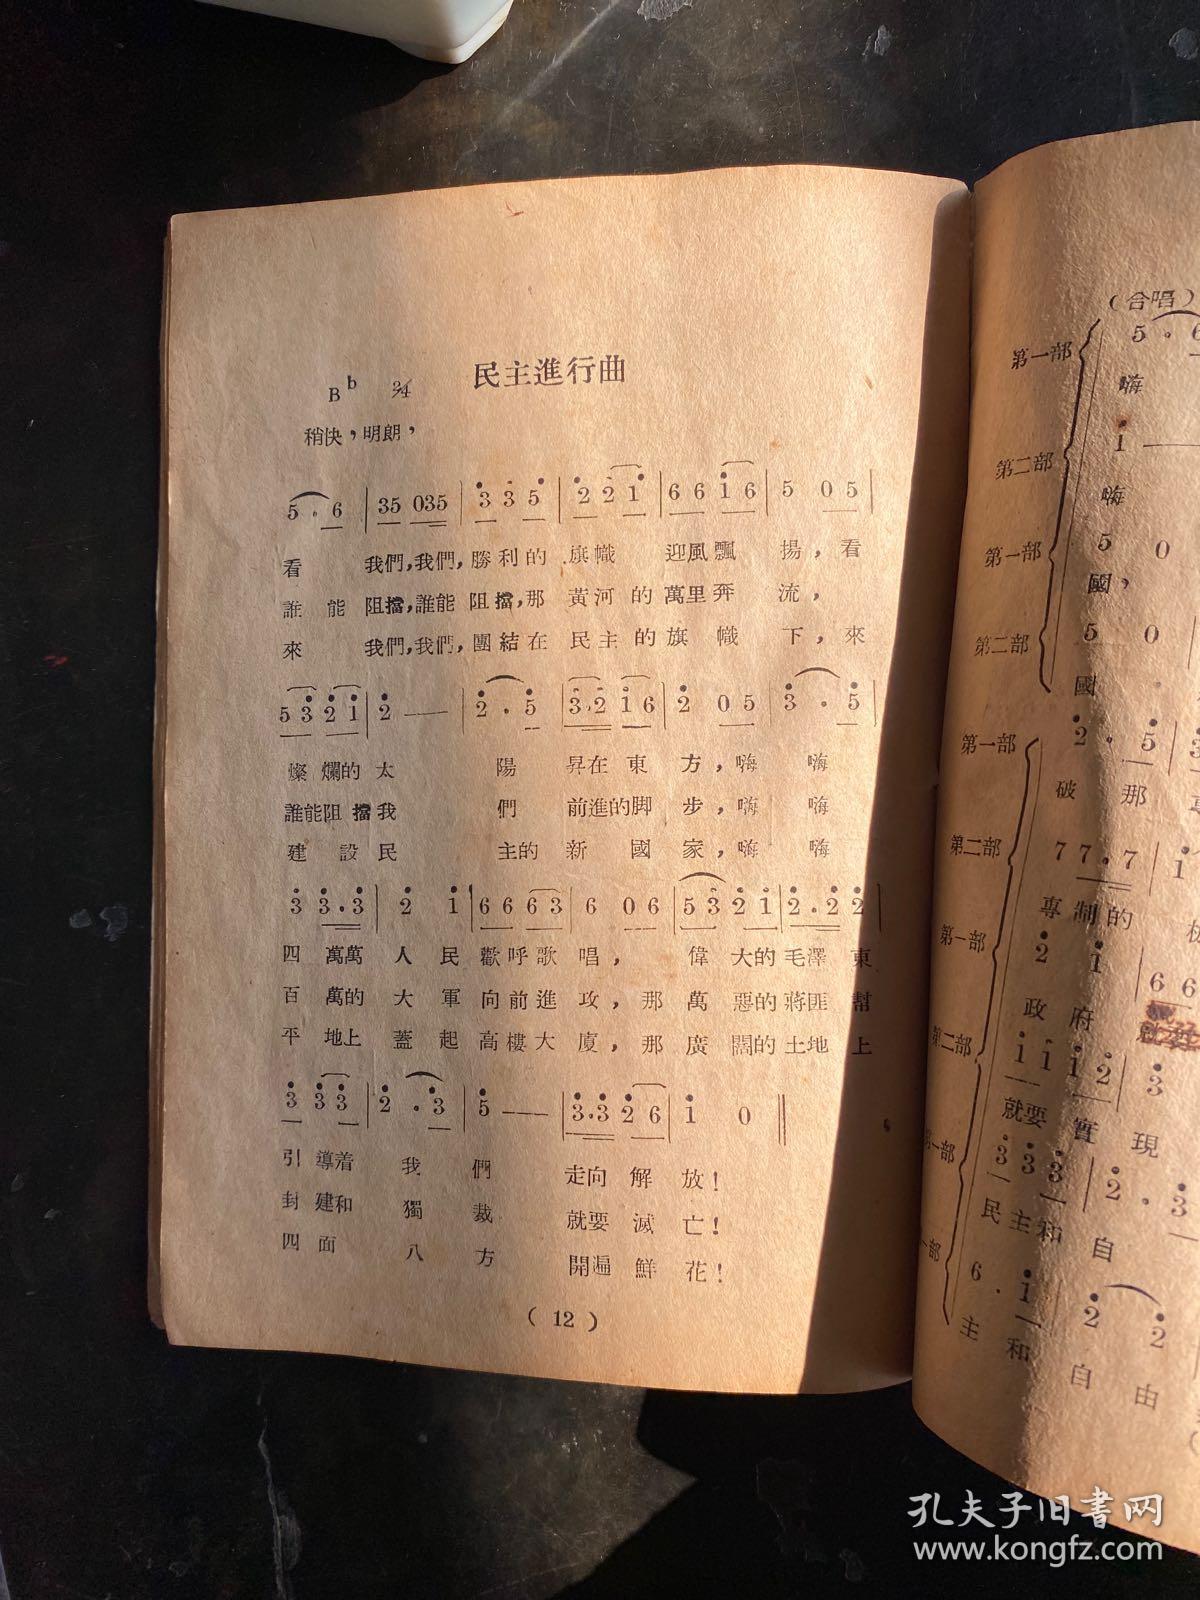 民主進行曲
B b 2/4
稍快，明朗，
5 . 6 | 35 035 | 3 3 5 | 2 2 1 | 6 6 1 6 | 5 0 5 |
看 我們，我們，勝利的 旗幟 迎風飄 揚，看
誰 能 阻擋，誰能 阻擋，那 黃河 的 萬里奔 流，
來 我們，我們，團結在 民主 的 旗 幟 下，來
5 3 2 1 | 2 — | 2 . 5 | 3.2 1 6 | 2 0 5 | 3 . 5 |
燦 爛的 太 陽 昇在 東 方，嗨 嗨
誰能阻 擋 我 們 前進的脚 步，嗨 嗨
建 設 民 主的 新 國 家，嗨 嗨
3 3.3 | 2 1 | 6 6 6 3 | 6 0 6 | 5 3 2 1 | 2.2 2 |
四 萬萬 人 民 歡呼歌 唱， 偉 大的 毛澤 東
百 萬的 大 軍 向前進 攻，那 萬 惡的 蔣匪 幫
平 地上 蓋 起 高樓大 廈，那 廣 闊的 土地 上
3 3 3 | 2 . 3 | 5 — | 3.3 2 6 | 1 0 ‖
引 導着 我 們 走向 解 放！
封 建和 獨 裁 就要 滅 亡！
四 面 八 方 開遍 鮮 花！
( 12 )
(合唱)
第一部 5 . 6
嗨
第二部 1 —
嗨
第一部 5 0
國，
第二部 5 0
國
第一部 2 . 5 | 3
破 那
第二部 7 7.7 | 1
專 制 的
第一部 2 1 | 6 6
政 府 就要
第二部 1 1 1 2 | 3
就要 實 現
一部 3 3 3 | 2 . 3
民 主 和 自
部 6 . 1 | 2 2
主 和 自 由
孔夫子旧书网
www.kongfz.com